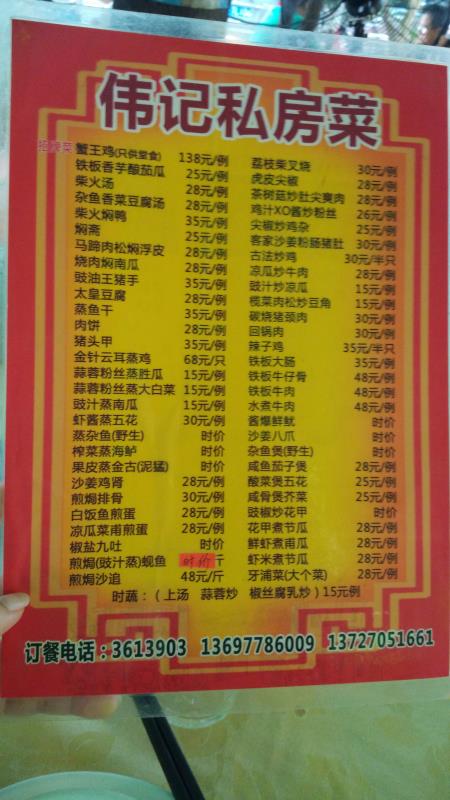 伟记私房菜
招牌菜 蟹王鸡(只供堂食) 138元/例
铁板香芋酿茄瓜 25元/例
柴火汤 28元/例
杂鱼香菜豆腐汤 28元/例
柴火焖鸭 35元/例
焖斋 25元/例
马蹄肉松焖浮皮 28元/例
烧肉焖南瓜 28元/例
豉油王猪手 35元/例
太皇豆腐 28元/例
蒸鱼干 35元/例
肉饼 28元/例
猪头甲 35元/例
金针云耳蒸鸡 68元/只
蒜蓉粉丝蒸胜瓜 15元/例
蒜蓉粉丝蒸大白菜 15元/例
豉汁蒸南瓜 15元/例
虾酱蒸五花 30元/例
蒸杂鱼(野生) 时价
榨菜蒸海鲈 时价
果皮蒸金古(泥猛) 时价
沙姜鸡肾 28元/例
煎焗排骨 30元/例
白饭鱼煎蛋 28元/例
凉瓜菜甫煎蛋 28元/例
椒盐九吐 时价
煎焗(豉汁蒸)蚬鱼 时价 斤
煎焗沙追 48元/斤
荔枝柴叉烧 30元/例
虎皮尖椒 28元/例
茶树菇炒肚尖爽肉 28元/例
鸡汁XO酱炒粉丝 26元/例
尖椒炒鸡杂 25元/例
客家沙姜粉肠猪肚 30元/例
古法炒鸡 30元/半只
凉瓜炒牛肉 28元/例
豉汁炒凉瓜 15元/例
榄菜肉松炒豆角 15元/例
碳烧猪颈肉 30元/例
回锅肉 30元/例
辣子鸡 35元/半只
铁板大肠 35元/例
铁板牛仔骨 48元/例
铁板牛肉 48元/例
水煮牛肉 48元/例
酱爆鲜鱿 时价
沙姜八爪 时价
杂鱼煲(野生) 时价
咸鱼茄子煲 28元/例
酸菜煲五花 25元/例
咸骨煲芥菜 25元/例
豉椒炒花甲 时价
花甲煮节瓜 28元/例
鲜虾煮甫瓜 28元/例
虾米煮节瓜 28元/例
牙浦菜(大个菜) 28元/例
时蔬：（上汤 蒜蓉炒 椒丝腐乳炒）15元例
订餐电话：3613903 13697786009 13727051661